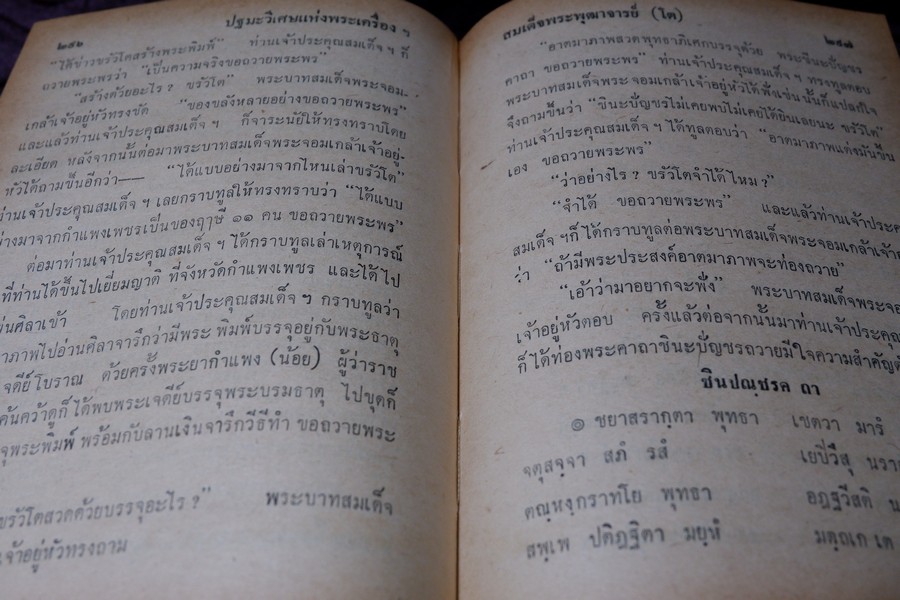 ๒๔๖ ปฐมะวิเศษแห่งพระเครื่อง ฯ
"ได้ข่าวขรัวโตสร้างพระพิมพ์" ท่านเจ้าประคุณสมเด็จ ฯ ก็
ถวายพระพรว่า "เป็นความจริงขอถวายพระพร"
"สร้างด้วยอะไร? ขรัวโต" พระบาทสมเด็จพระจอม-
เกล้าเจ้าอยู่หัวทรงซัด "ของขลังหลายอย่างขอถวายพระพร"
และแล้วท่านเจ้าประคุณสมเด็จ ฯ ก็จำระนัยให้ทรงทราบโดย
ละเอียด หลังจากนั้นต่อมาพระบาทสมเด็จพระจอมเกล้าเจ้าอยู่-
หัวได้ถามขึ้นอีกว่า— "ได้แบบอย่างมาจากไหนเล่าขรัวโต"
ท่านเจ้าประคุณสมเด็จ ฯ เลยกราบทูลให้ทรงทราบว่า "ได้แบบ
อย่างมาจากกำแพงเพชรเป็นของฤๅษี ๑๑ ตน ขอถวายพระพร"
ต่อมาท่านเจ้าประคุณสมเด็จ ฯ ได้กราบทูลเล่าเหตุการณ์
ที่ท่านได้ขึ้นไปเยี่ยมญาติ ที่จังหวัดกำแพงเพชร และได้ไป
แผ่นศิลาเข้า โดยท่านเจ้าประคุณสมเด็จ ฯ กราบทูลว่า
าภาพไปอ่านศิลาจารึกว่ามีพระ พิมพ์บรรจุอยู่กับพระธาตุ
เจดีย์โบราณ ด้วยครั้งพระยากำแพง (น้อย) ผู้ว่าราช
ค้นคว้าดูก็ได้พบพระเจดีย์บรรจุพระบรมธาตุ ไปขุดก็
จุพระพิมพ์ พร้อมกับลานเงินจารึกวีธีทำ ขอถวายพระ
ขรัวโตสวดด้วยบรรจุอะไร?" พระบาทสมเด็จ
เจ้าอยู่หัวทรงถาม
สมเด็จพระพุฒาจารย์ (โต) ๒๔๗
"อาตมาภาพสวดพุทธาภิเศกบรรจุด้วย พระชินะบัญชร
คาถา ขอถวายพระพร" ท่านเจ้าประคุณสมเด็จ ฯ ทรงทูลตอบ
พระบาทสมเด็จพระจอมเกล้าเจ้าอยู่หัวได้ฟังเช่นนั้นก็แปลกใจ
จึงถามขึ้นว่า "ชินะบัญชรไม่เคยพบไม่เคยได้ยินเลยนะ ขรัวโต"
ท่านเจ้าประคุณสมเด็จ ฯ ได้ทูลตอบว่า "อาตมาภาพแต่งมันขึ้น
เอง ขอถวายพระพร"
"ว่าอย่างไร? ขรัวโตจำได้ไหม?"
"จำได้ ขอถวายพระพร" และแล้วท่านเจ้าประคุ
สมเด็จ ฯก็ได้กราบทูลต่อพระบาทสมเด็จพระจอมเกล้าเจ้าอ
ว่า "ถ้ามีพระประสงค์อาตมาภาพจะท่องถวาย"
"เอ้าว่ามาอยากจะฟัง" พระบาทสมเด็จพระจอ
เจ้าอยู่หัวตอบ ครั้งแล้วต่อจากนั้นมาท่านเจ้าประคุณ
ก็ได้ท่องพระคาถาชินะบัญชรถวายมีใจความสำคัญดั
ชินปณฺชรค ถา
๑ ชยาสรากฺตา พุทธา เชตวา มารํ
จตุสจฺจา สภํ รสํ เยปิวึสุ นรา
ตณฺหงฺกราทโย พุทธา อฏฺฐวีสติ น
สพฺเพ ปติฏฺฐิตา มยฺหํ มตฺถเก เต